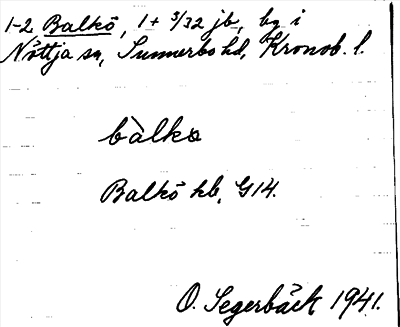 1-2 Balkö, 1 + 3/32 jb, by i
Nöttja sn, Sunnerbo hd, Kronob. l.
bàlkə
Balkö hb, G14.
O. Segerbäck 1941.